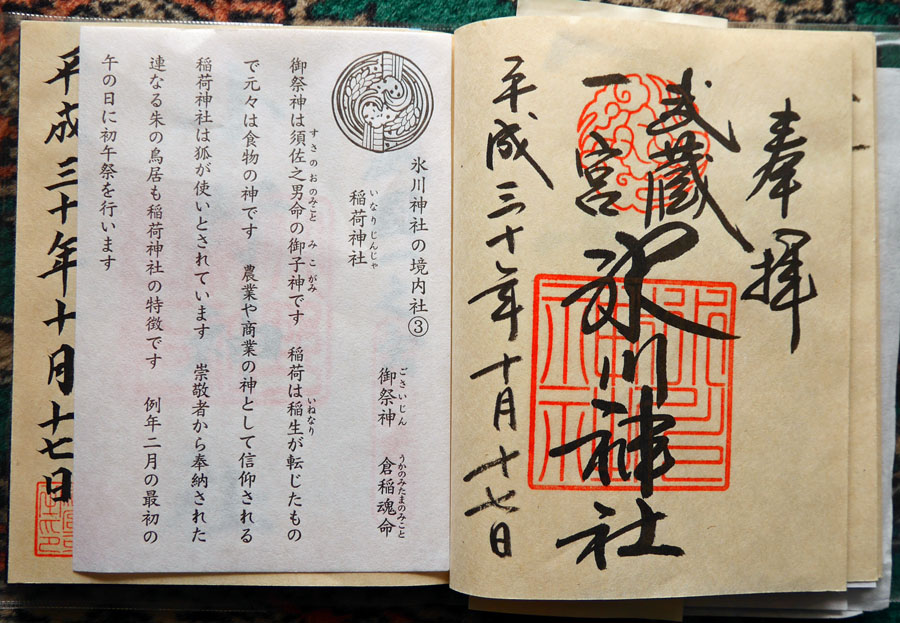 奉拝
武蔵
一宮
氷川神社
平成三十年十月十七日
氷川神社の境内社③
稲荷神社
いなりじんじゃ
御祭神 倉稲魂命
ごさいじん うかのみたまのみこと
御祭神は須佐之男命の御子神です 稲荷は稲生が転じたもの
すさのおのみこと みこがみ いねなり
で元々は食物の神です 農業や商業の神として信仰される
稲荷神社は狐が使いとされています 崇敬者から奉納された
連なる朱の鳥居も稲荷神社の特徴です 例年二月の最初の
午の日に初午祭を行います
平成三十年十月十七日